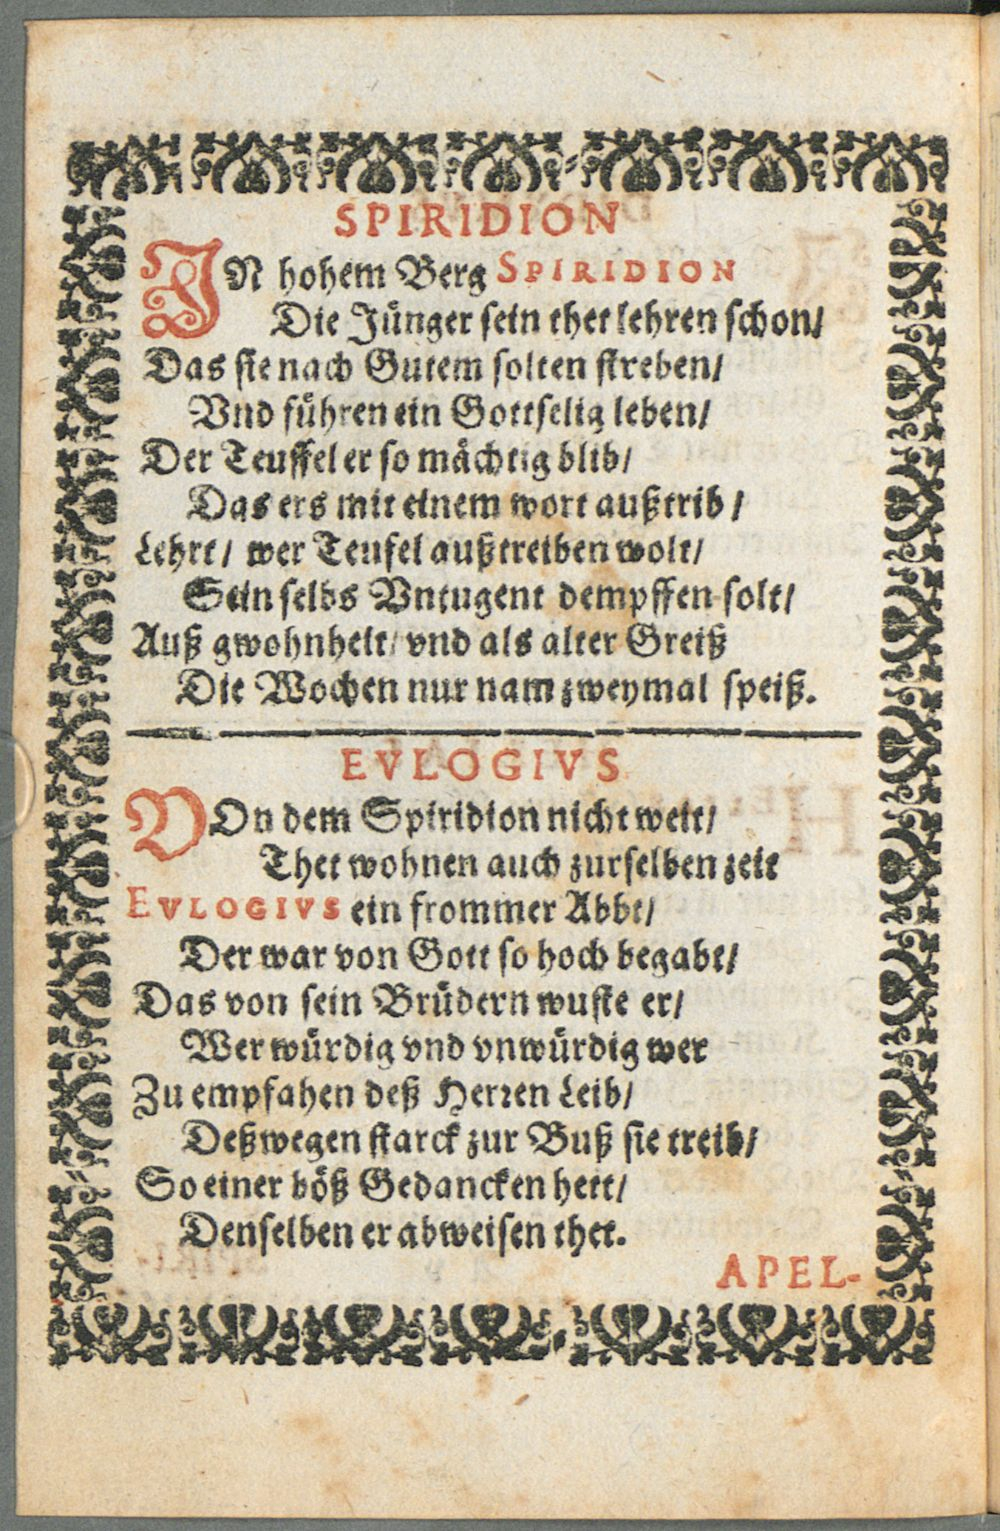 SPIRIDION
IN hohem Berg SPIRIDION
Die Jünger sein thet lehren schon/
Das sie nach Gutem solten streben/
Vnd führen ein Gottselig leben/
Der Teuffel er so mächtig blib/
Das ers mit einem wort außtrib/
Lehrt/ wer Teufel außtreiben wolt/
Sein selbs Vntugent dempffen solt/
Auß gwohnheit/ vnd als alter Greiß
Die Wochen nur nam zweymal speiß.
EVLOGIVS
VOn dem Spiridion nicht weit/
Thet wohnen auch zurselben zeit
EVLOGIVS ein frommer Abbt/
Der war von Gott so hoch begabt/
Das von sein Brüdern wuste er/
Wer würdig vnd vnwürdig wer
Zu empfahen deß Herren Leib/
Deßwegen starck zur Buß sie treib/
So einer böß Gedancken hett/
Denselben er abweisen thet.
APEL-